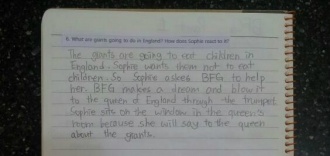 5. What are giants going to do in England? How does Sophie react to it?
The giants are going to eat children in
England. Sophie wants them not to eat
children. So Sophie askes BFG to help
her. BFG makes a dream and blow it
to the queen of England through the trumpet.
Sophie sits on the window in the queen's
room because she will say to the queen
about the giants.